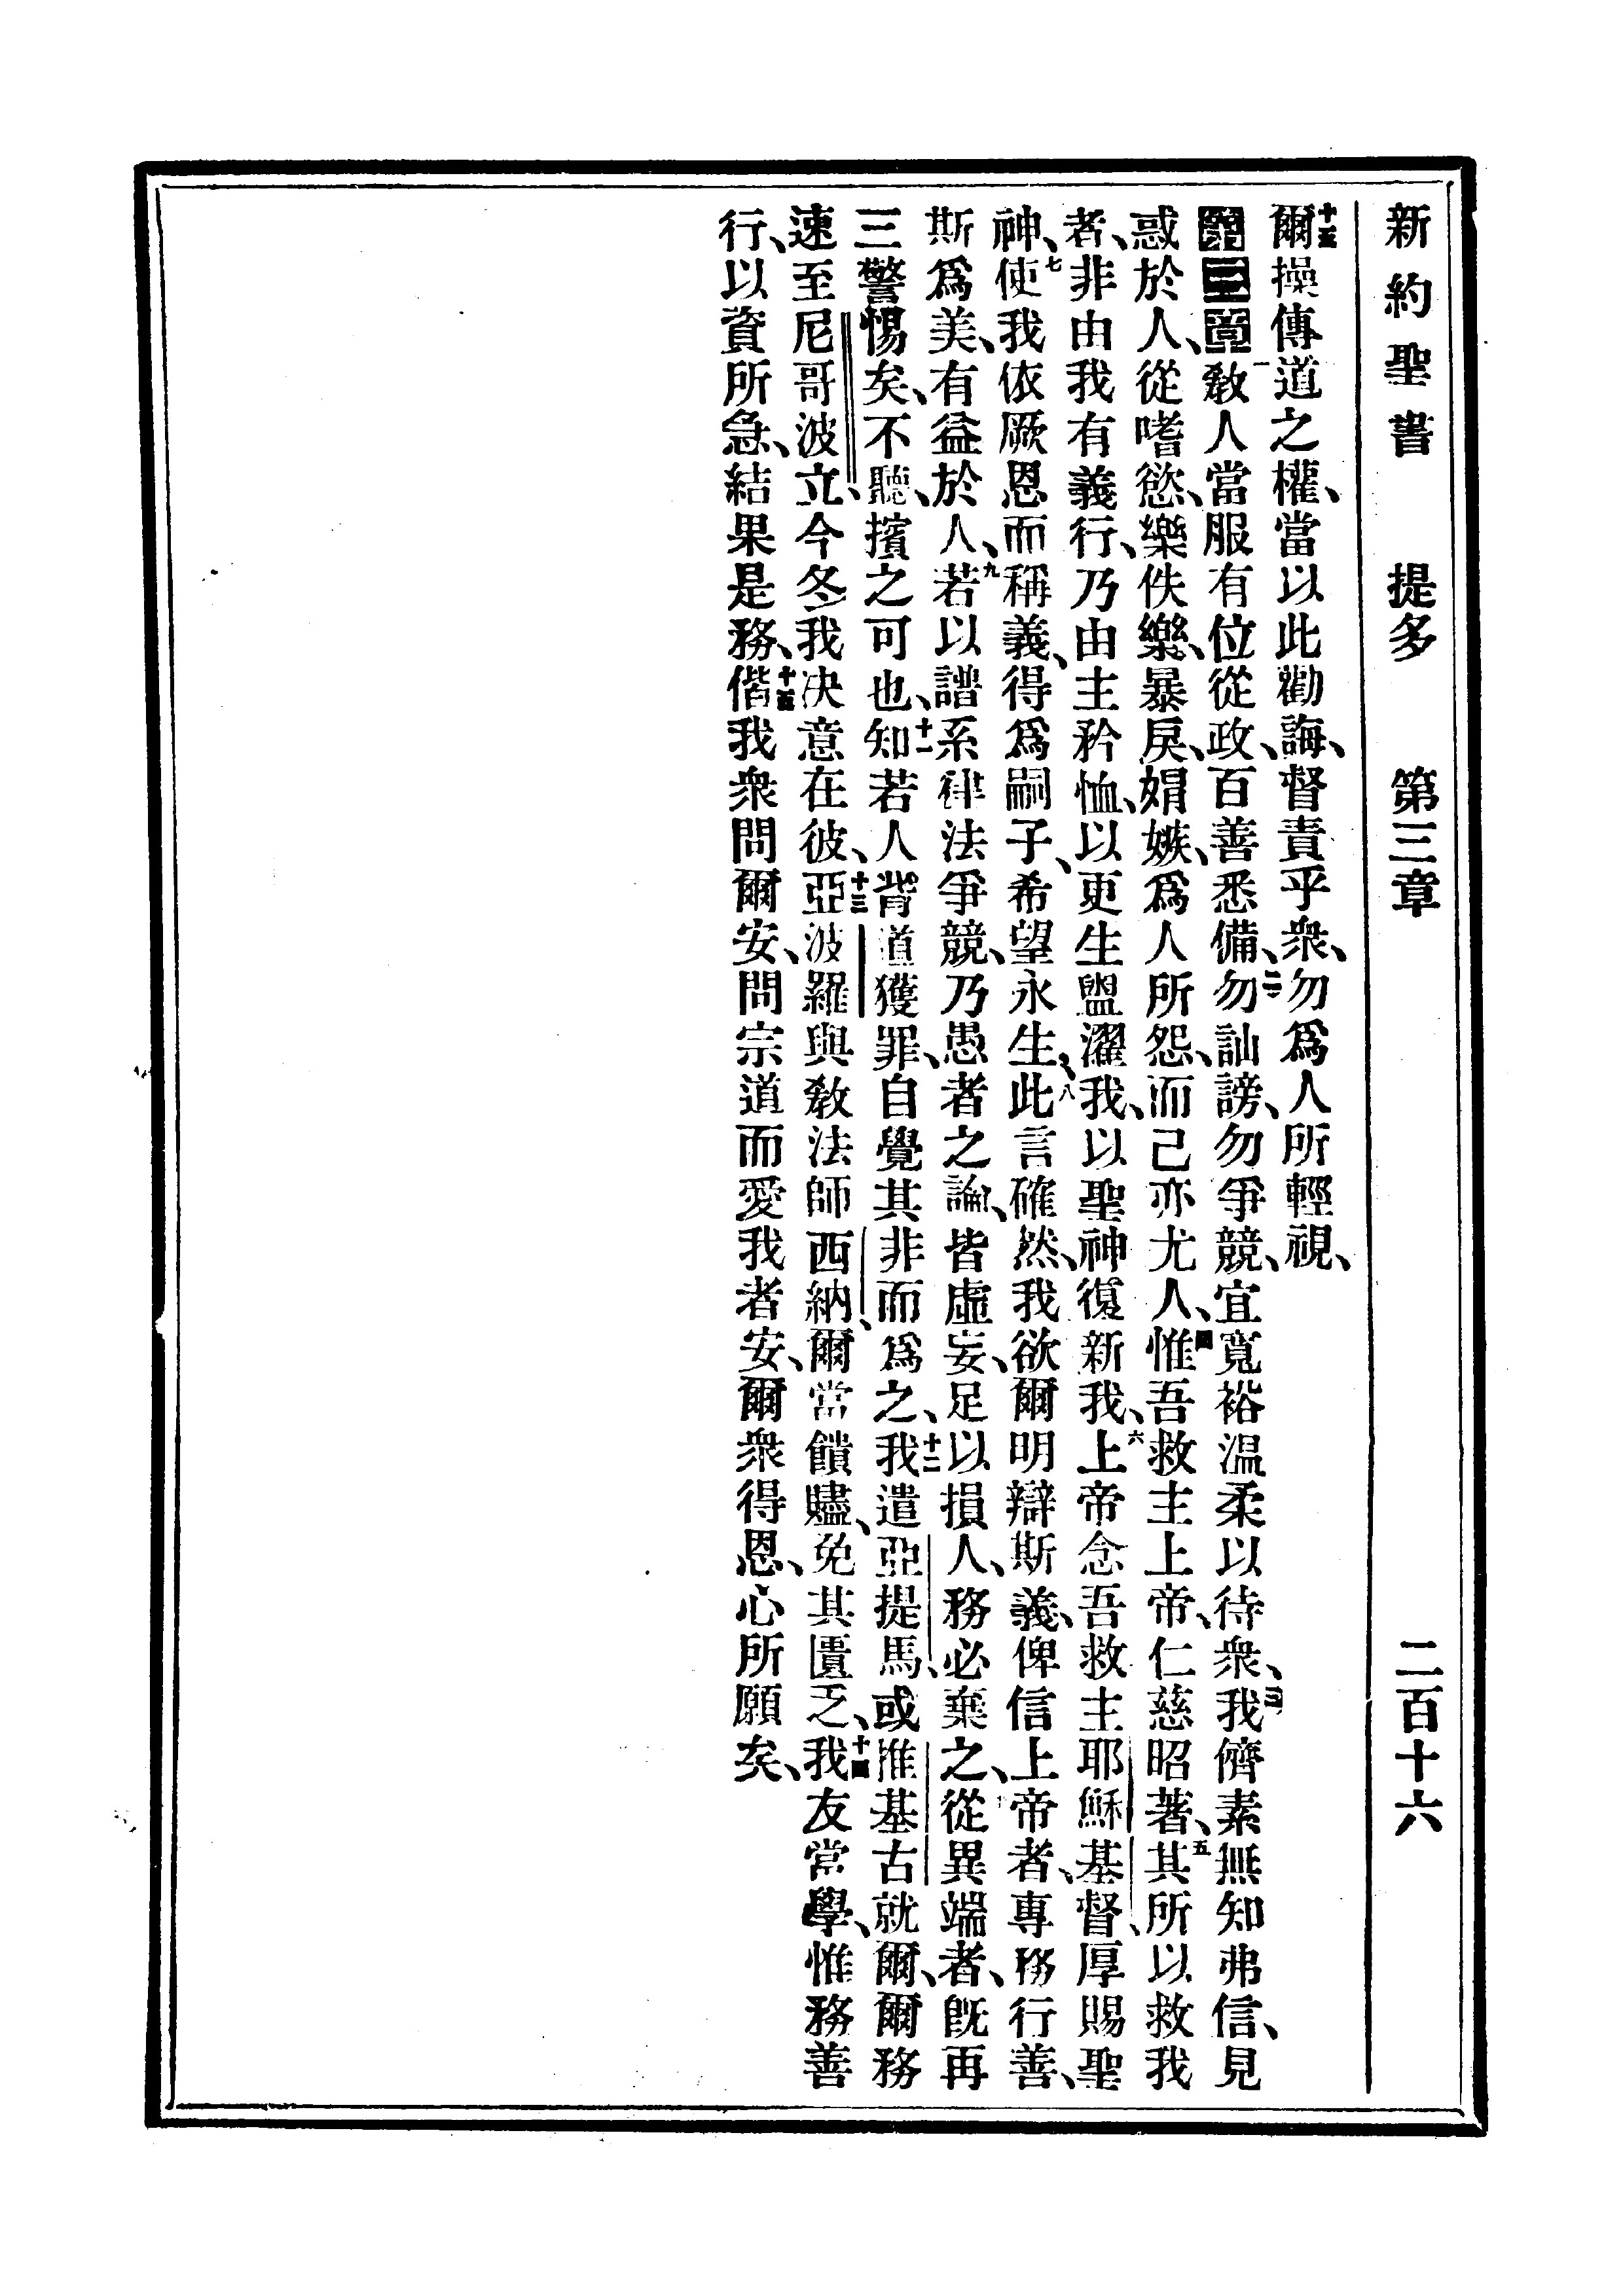 新約聖書 提多 第三章 二百十六
十五爾操傳道之權、當以此勸誨、督責乎衆、勿爲人所輕視、
第三章一敎人當服有位從政、百善悉備、二勿訕謗、勿爭競、宜寬裕温柔以待衆、三我儕素無知弗信、見
惑於人、從嗜慾、樂佚樂、暴戾、媢嫉、爲人所怨、而己亦尤人、四惟吾救主上帝、仁慈昭著、五其所以救我
者、非由我有義行、乃由主矜恤、以更生盥濯我、以聖神復新我、六上帝念吾救主耶穌基督、厚賜聖
神、七使我依厥恩而稱義、得爲嗣子、希望永生、八此言確然、我欲爾明辯斯義、俾信上帝者、專務行善、
斯爲美、有益於人、九若以譜系律法爭競、乃愚者之論、皆虛妄、足以損人、務必棄之、十從異端者、旣再
三警惕矣、不聽、擯之可也、十一知若人背道獲罪、自覺其非而爲之、十二我遣亞提馬、或推基古就爾、爾務
速至尼哥波立、今冬我决意在彼、十三亞波羅與敎法師西納、爾當饋贐、免其匱乏、十四我友當學、惟務善
行、以資所急、結果是務、十五偕我衆問爾安、問宗道而愛我者安、爾衆得恩、心所願矣、